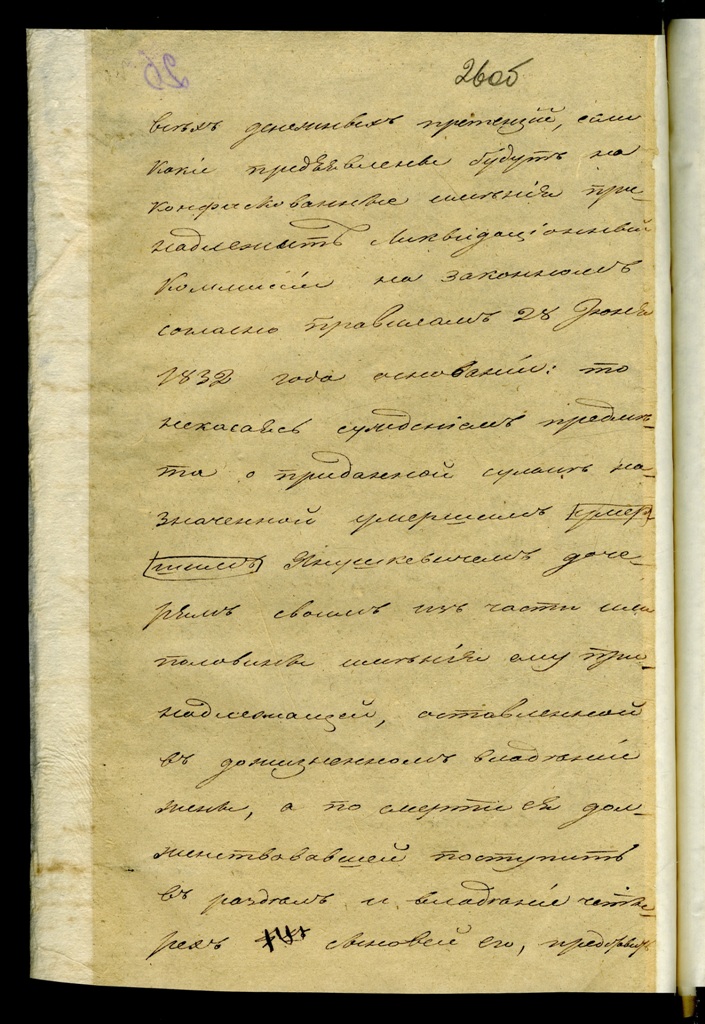 26 26об
всѣхъ денежныхъ претензій, если
какіе предъявлены будутъ на
конфискованные имѣнія при-
надлежитъ Ликвидаціонной
Коммисіи на законномъ
согласно правиламъ 28 Іюня
1832 года основаніи: то
некасаясь сужденіемъ предмѣ-
та о приданной суммѣ на-
значенной умершимъ умер-
шимъ Янушкевичемъ доче-
рямъ своимъ изъ части или
половины имѣнія ему при-
надлежащей, оставленной
въ дожизненномъ владѣніи
жены, а по смерти ея дол-
женствовавшей поступить
въ раздѣлъ и владѣніе четы-
рехъ сыновей его, предоставить